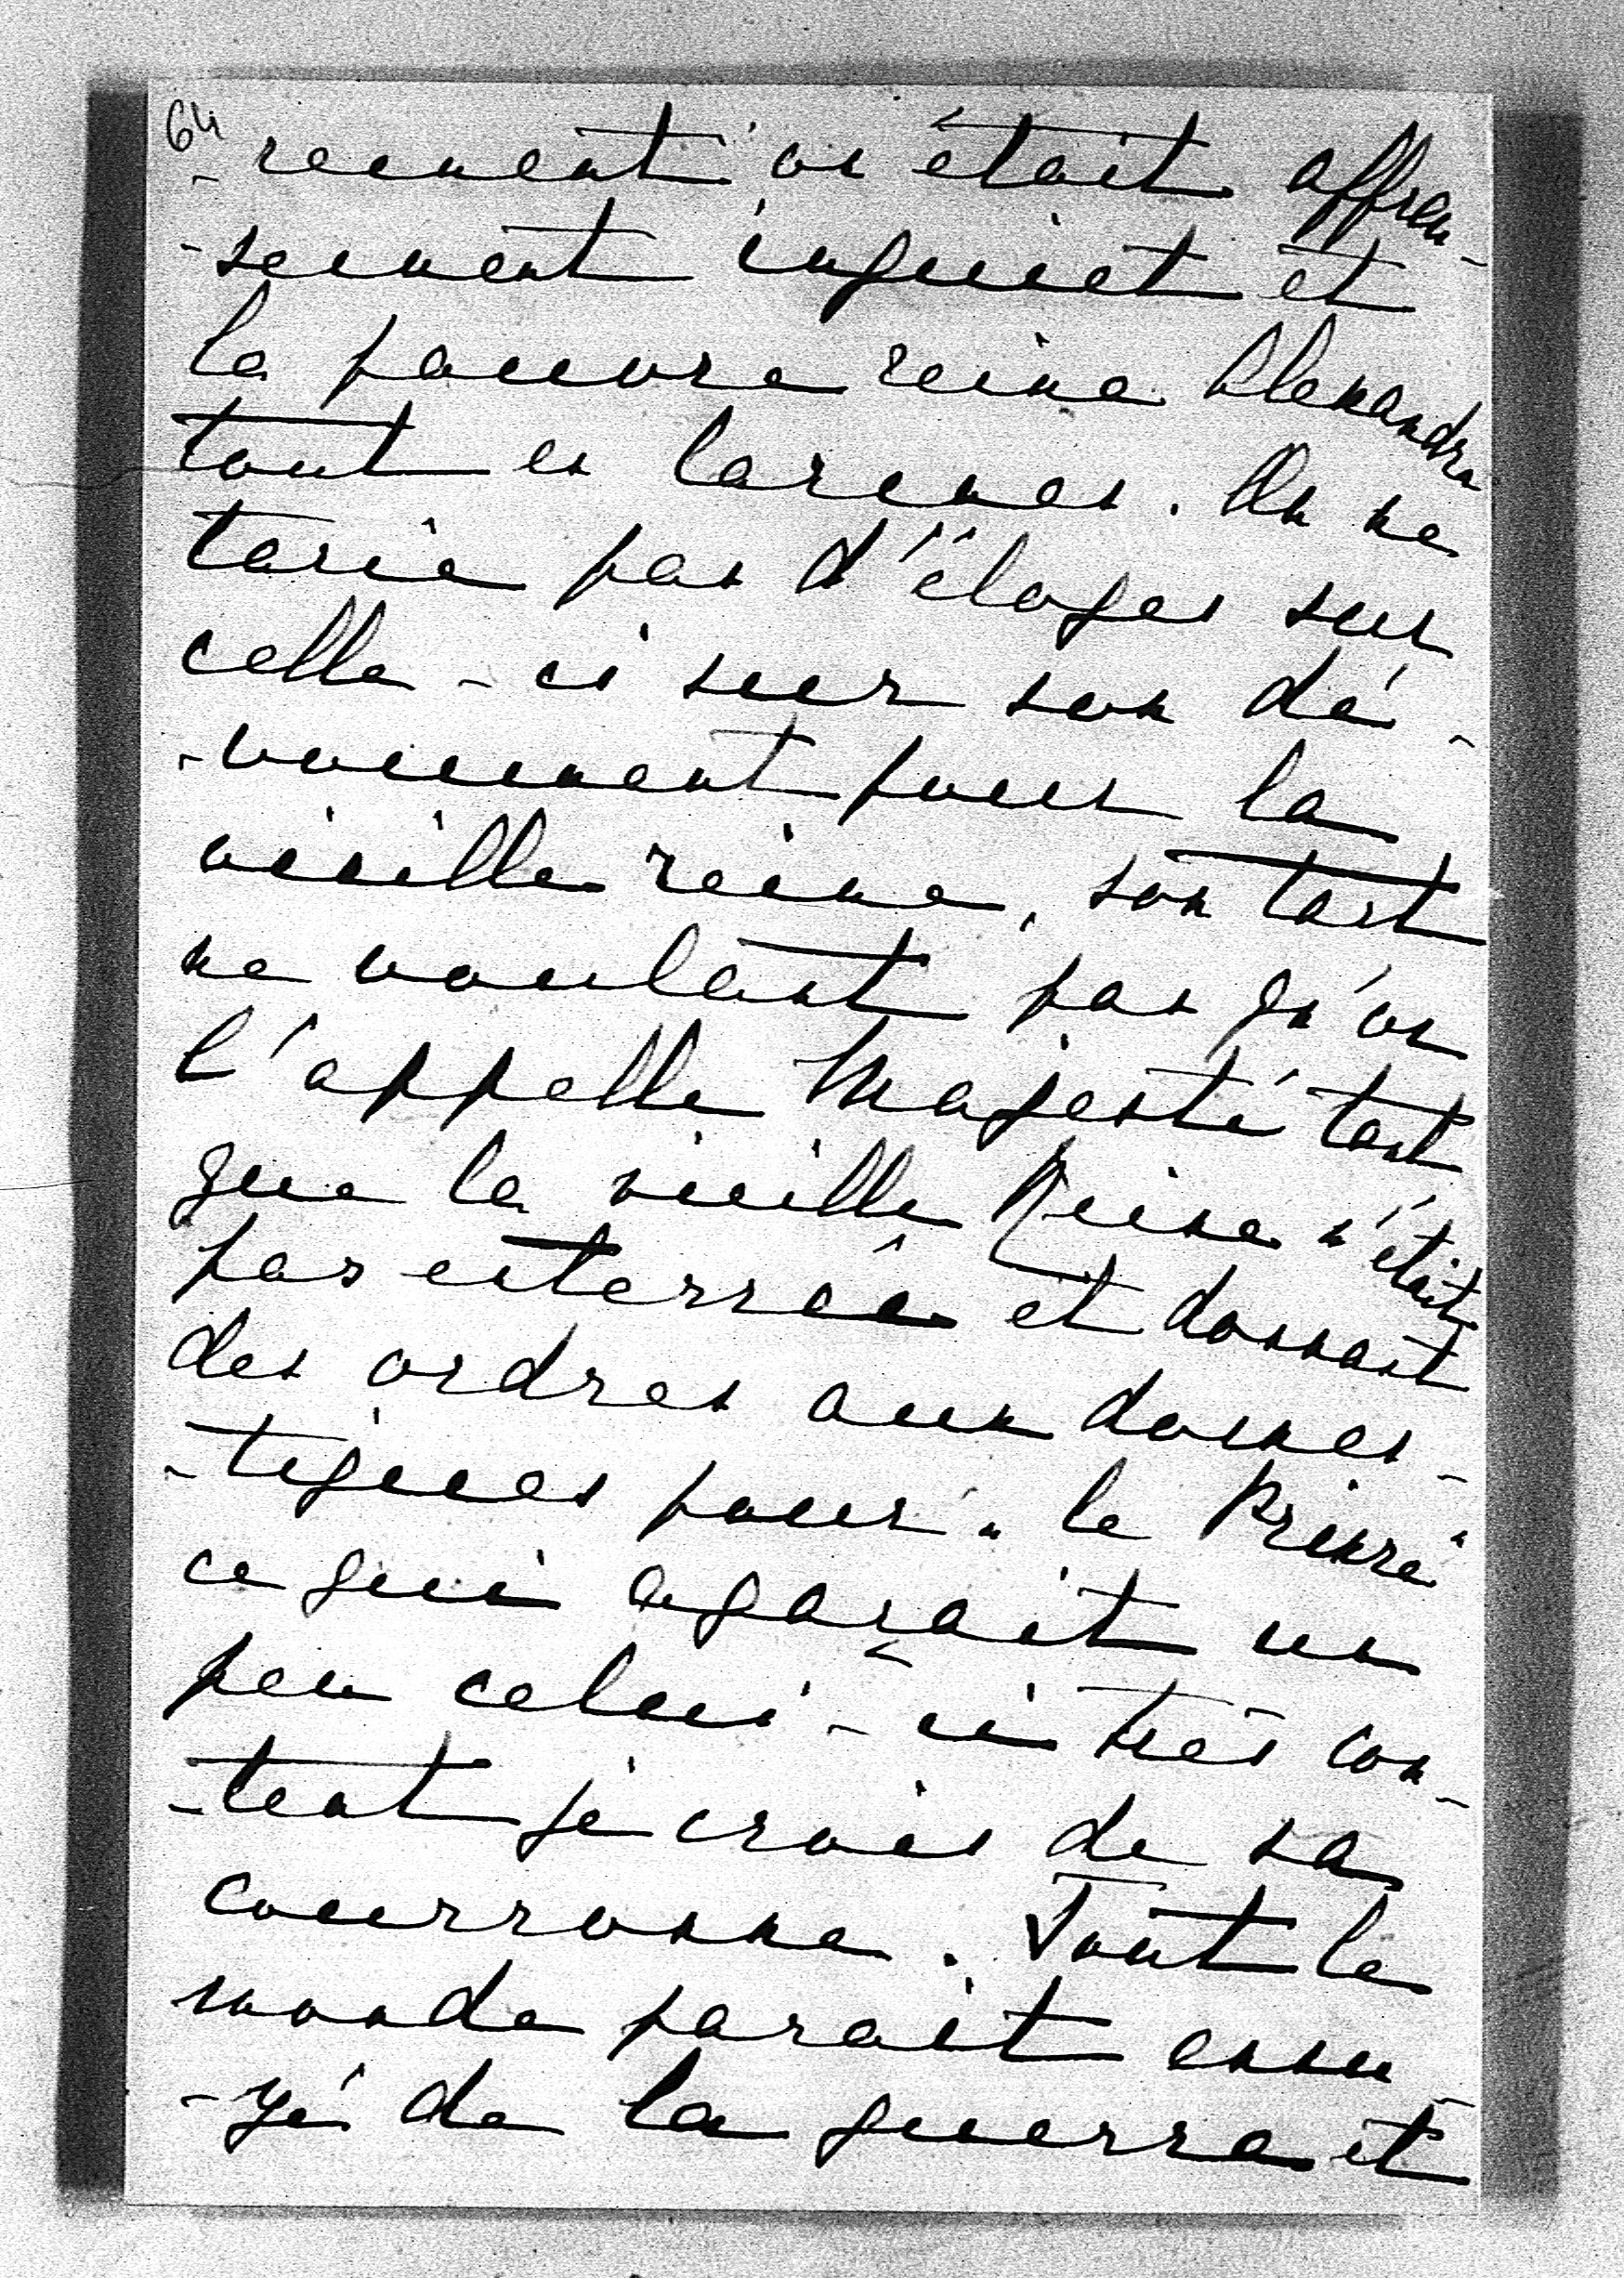 64
-rement on était affreu-
-sement inquiet et
la pauvre reine Alexandra
tout en larmes. On ne
tarie pas d'éloges sur
celle-ci sur son dé-
-vouement pour la
vieille reine, son tact
ne voulant pas qu'on
l'appelle Majesté tant
que la vieille Reine n'était
pas enterrée et donnait
des ordres aux domes-
-tiques pour "le Prince"
ce qui agaçait un
peu celui-ci très con-
-tent je crois de sa
couronne. Tout le
monde parait ennu-
-yé de la guerre et